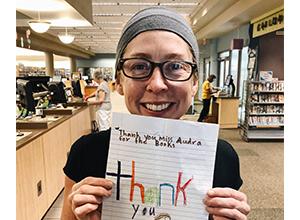 "Thank you Miss Audra
for the Books
thank
you